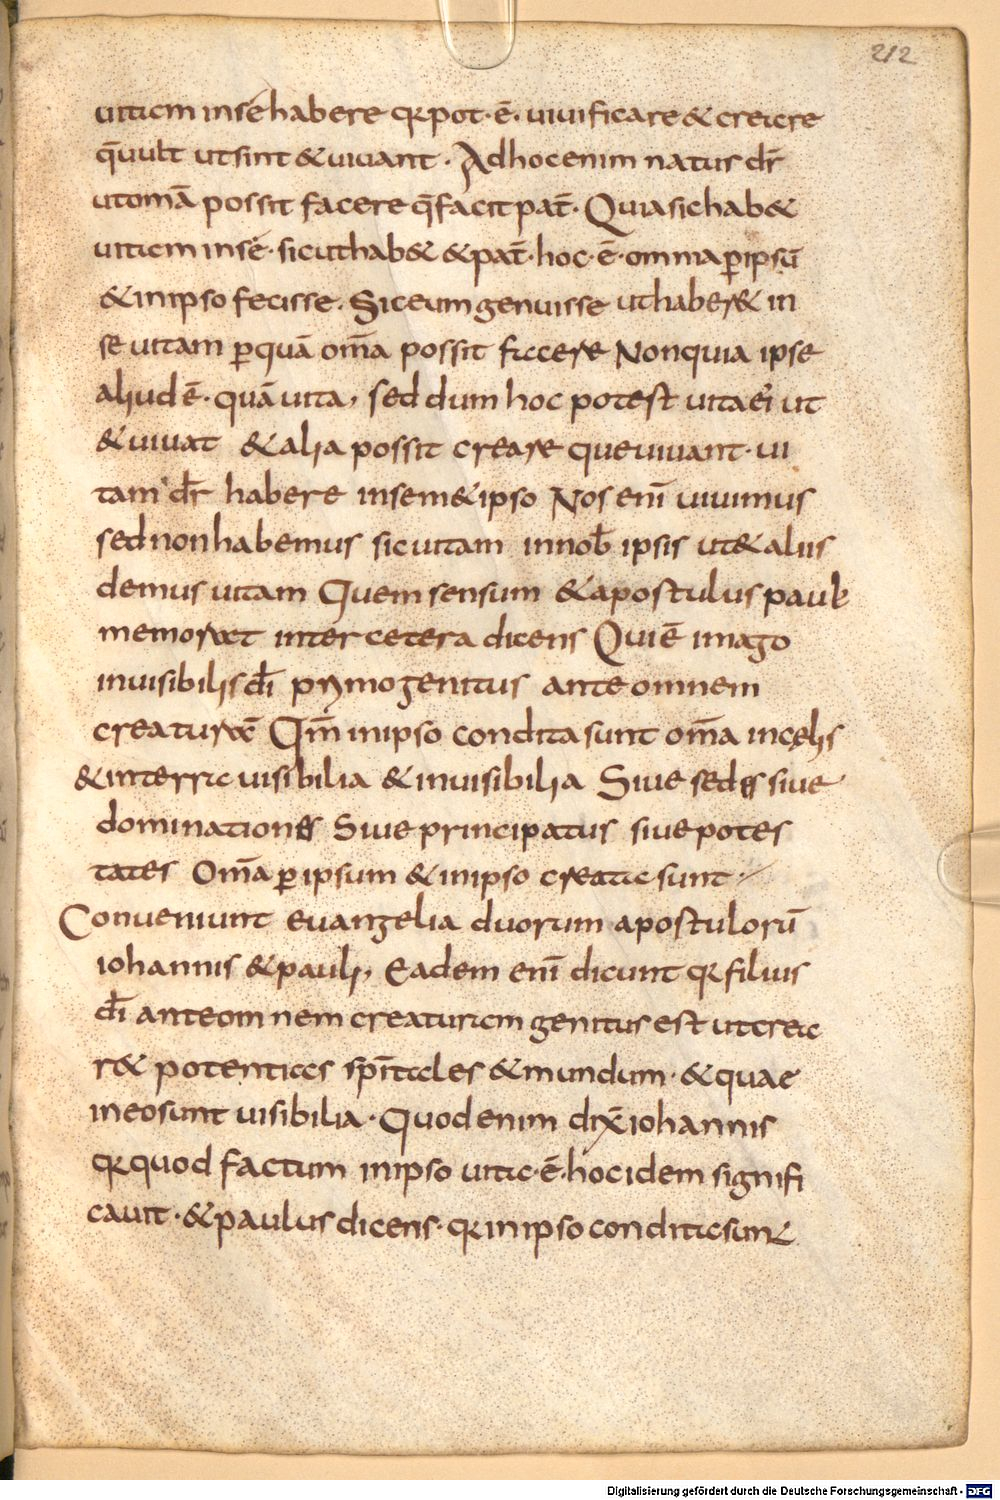 212
uitam insé habere qr pot· ē· uiuificare & creare
q̄ uult ut sint & uiuant · Ad hoc enim natus dr̄
ut omā possit facere q̄ facit pat̄· Quia sic hab&
uitam insé· sicut hab& & pat̄· hoc· ē· omnia ꝑ ipsū
& in ipso fecisse. Sic eum genuisse ut haber& in
se uitam ꝑ quā om̄a possit facere Non quia ipse
aliud ē· quā uita, sed dum hoc potest uita ei ut
& uiuat & alia possit creare que uiuant· ui
tam dr̄ habere in sem& ipso Nos enī uiuimus
sed non habemus sic uitam in nob̄ ipsis ut & aliis
demus uitam Quem sensum & apostulus paulꝰ
memorat inter cetera dicens Qui ē imago
inuisibilis dī primogenitus ante omnem
creaturā Qm̄ in ipso condita sunt om̄a in cęlis
& in terra uisibilia & inuisibilia Siue sedes siue
dominationes Siue principatus siue potes
tates Om̄a ꝑ ipsum & in ipso creata sunt·
Conueniunt euangelia duorum apostulorū
iohannis & pauli, Eadem enī dicunt qr filius
dī ante omnem creaturam genitus est ut crea
r& potentias spr̄itales & mundum· & quae
in eo sunt uisibilia· Quod enim dix̄ iohannis
qr quod factum in ipso uita· ē· hoc idem signifi
cauit· & paulus dicens· qr in ipso condita sunt
Digitalisierung gefördert durch die Deutsche Forschungsgemeinschaft - DFG